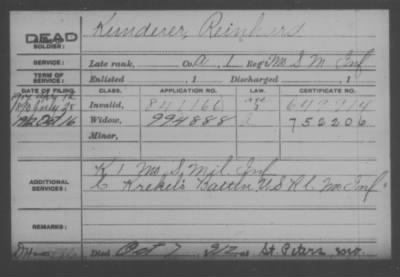 Kunderer, Reinhard
DEAD
SOLDIER:
SERVICE: Late rank, Co. A, 1 Reg't Mo. S. M. Inf
TERM OF SERVICE: Enlisted , 1 Discharged , 1
DATE OF FILING. CLASS. APPLICATION NO. LAW. CERTIFICATE NO.
1890 July 25 Invalid, 841166 649,914
1912 Oct 16 Widow, 994888 752206
Minor,
ADDITIONAL SERVICES: K 1 Mo. S. Mil. Inf
C Krekel's Batt'n U.S. R. C. Mo. Inf.
REMARKS:
Died Oct 7, 912 at St. Peters Mo